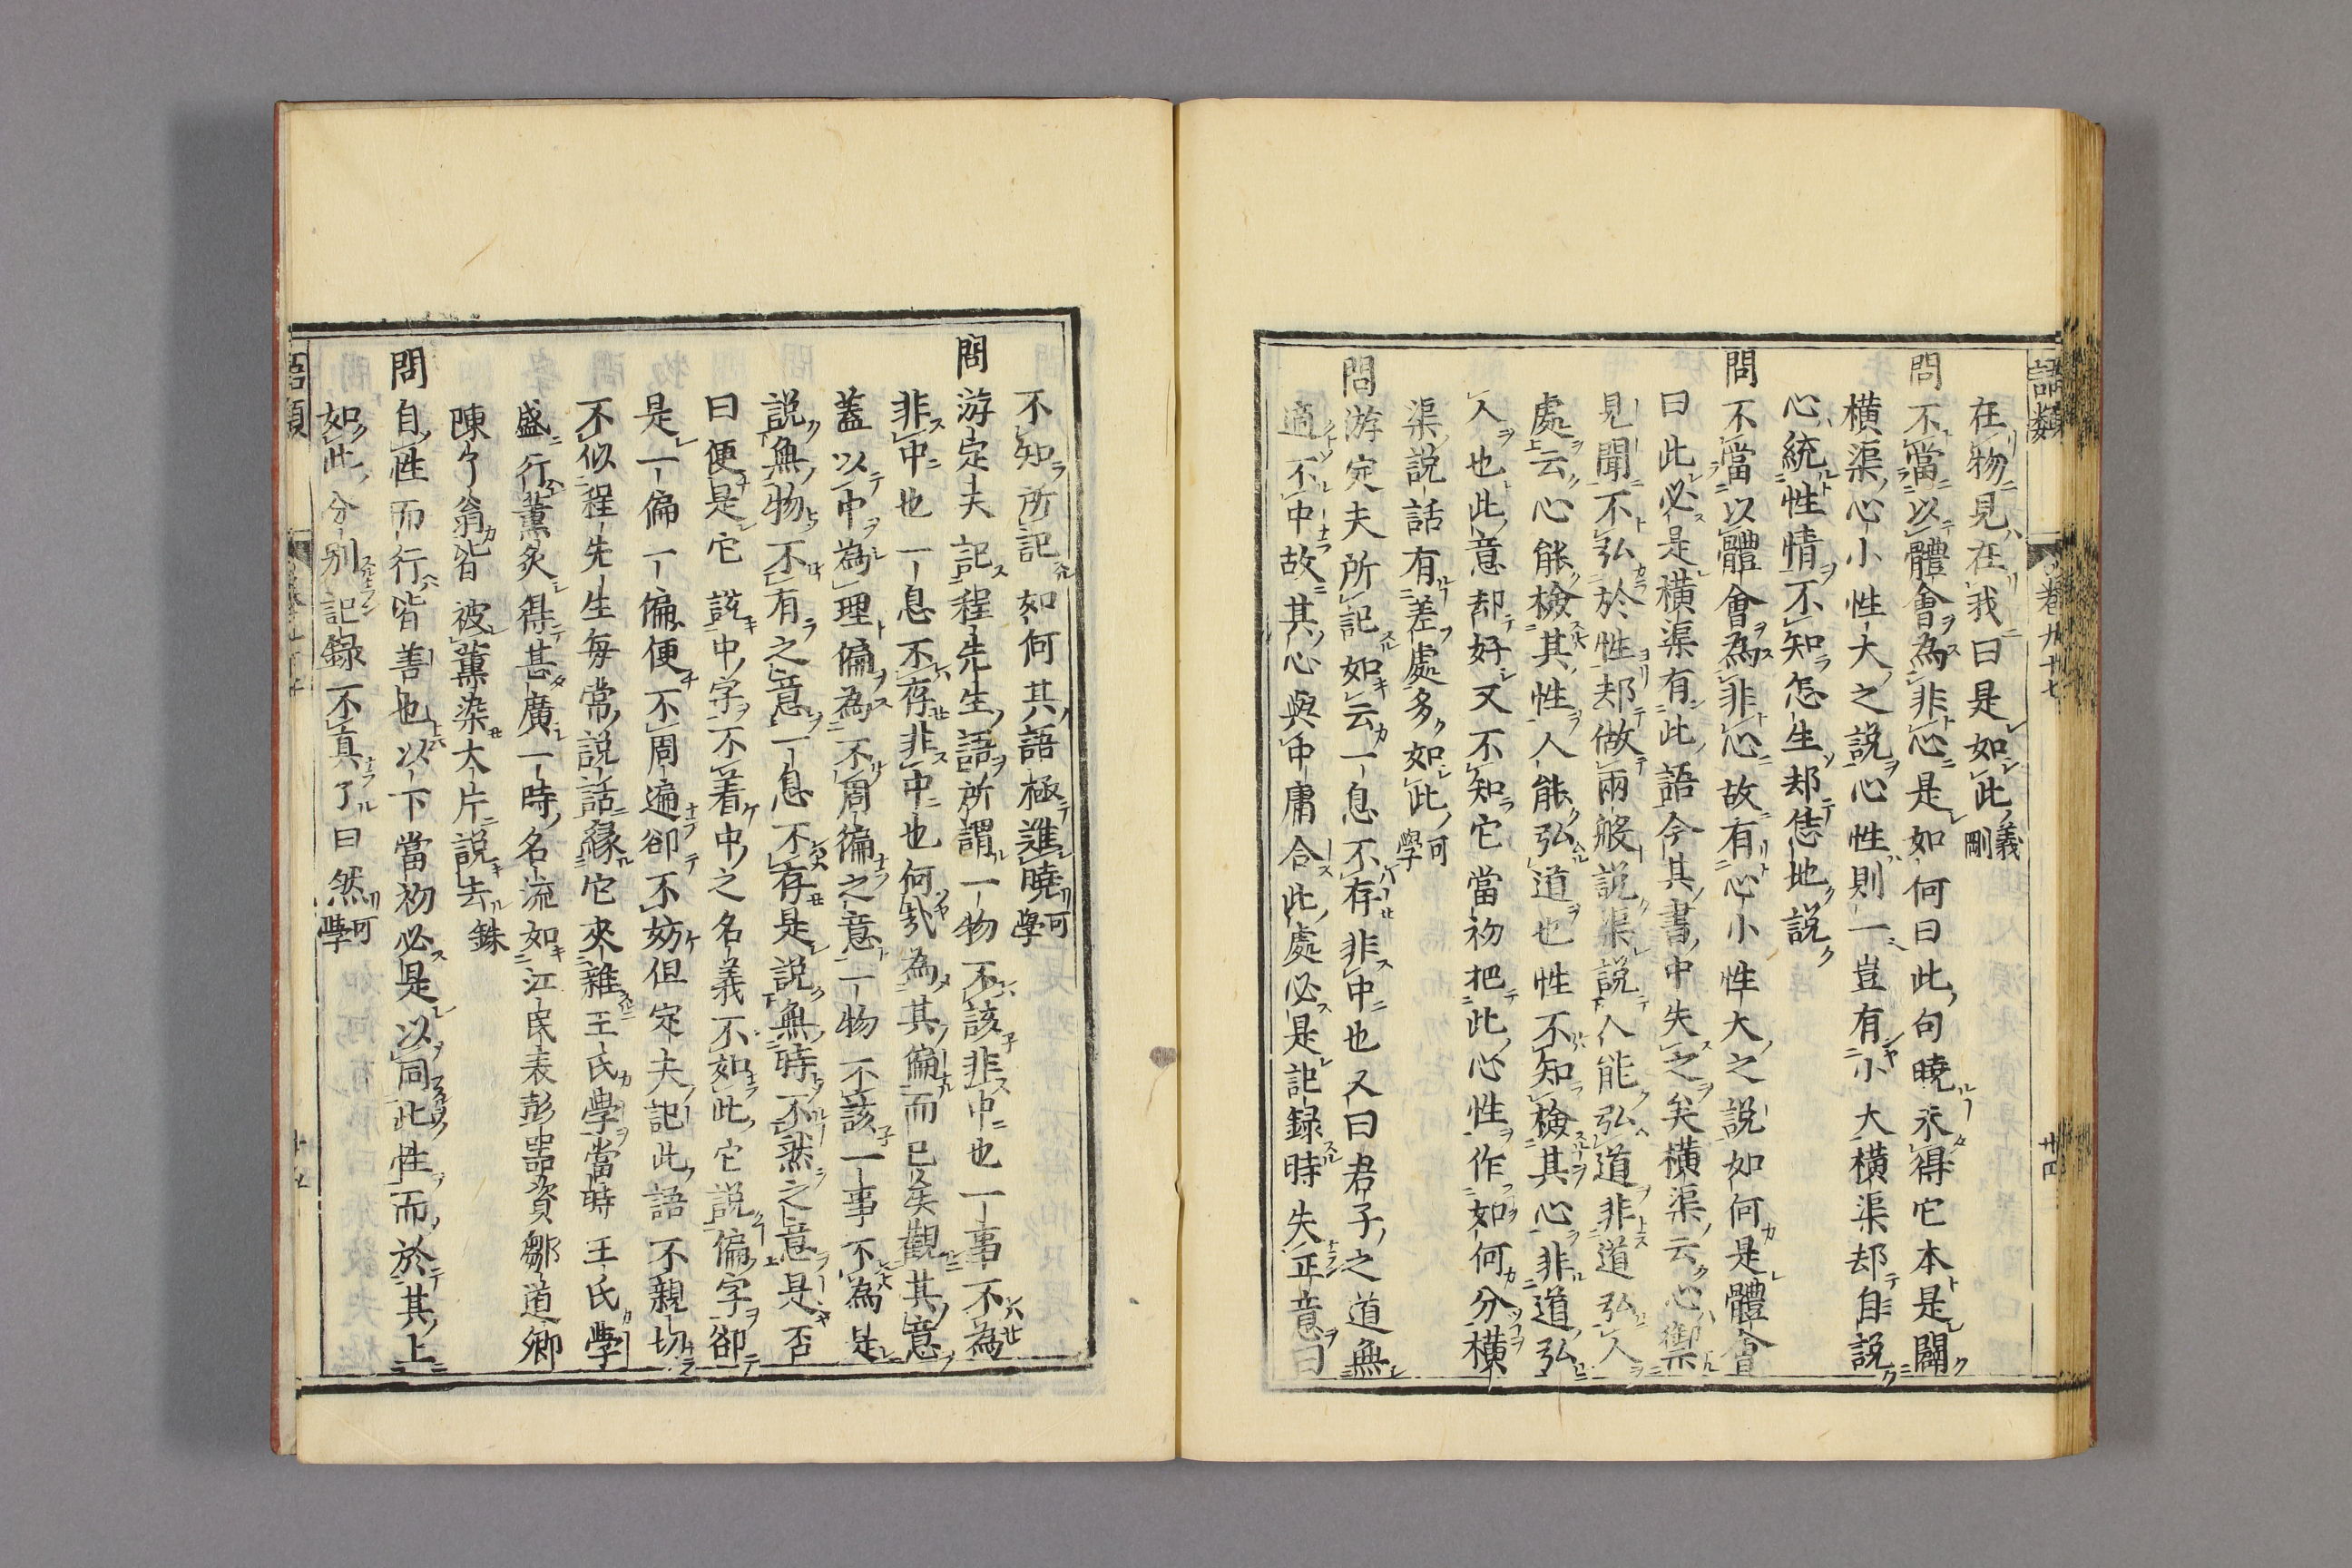 語類
卷九十七
廿四
在物見在我曰是如此義剛
問不當以體會為非心是如何曰此句曉未得它本是闢
橫渠心小性大之説心性則一豈有小大橫渠却自説
心統性情不知怎生却恁地説
問不當以體會為非心故有心小性大之説如何是體會
曰此必是橫渠有此語今其書中失之矣橫渠云心禦
見聞不弘於性却做兩般説渠説人能弘道非道弘人
處云心能檢其性人能弘道也性不知檢其心非道弘
人也此意却好又不知它當初把此心性作如何分橫
渠説話有差處多如此可學
問游定夫所記如云一息不存非中也又曰君子之道無
適不中故其心與中庸合此處必是記録時失正意曰
不知所記如何其語極難曉可學
問游定夫記程先生語所謂一物不該非中也一事不為
非中也一息不存非中也何哉為其偏而已矣觀其意
蓋以中為理偏為不周徧之意一物不該一事不為是
説無物不有之意一息不存是説無時不然之意是否
曰便是它説中字不著中之名義不如此它説偏字卻
是一偏一偏便不周遍卻不妨但定夫記此語不親切
不似程先生每常説話縁它來雜王氏學當時王氏學
盛行薰炙得甚廣一時名流如江民表彭器資鄒道卿
陳了翁皆被薰染大片説去銖
問自性而行皆善也以下當初必是以同此性而於其上
如此分别記録不真了曰然可學
語類